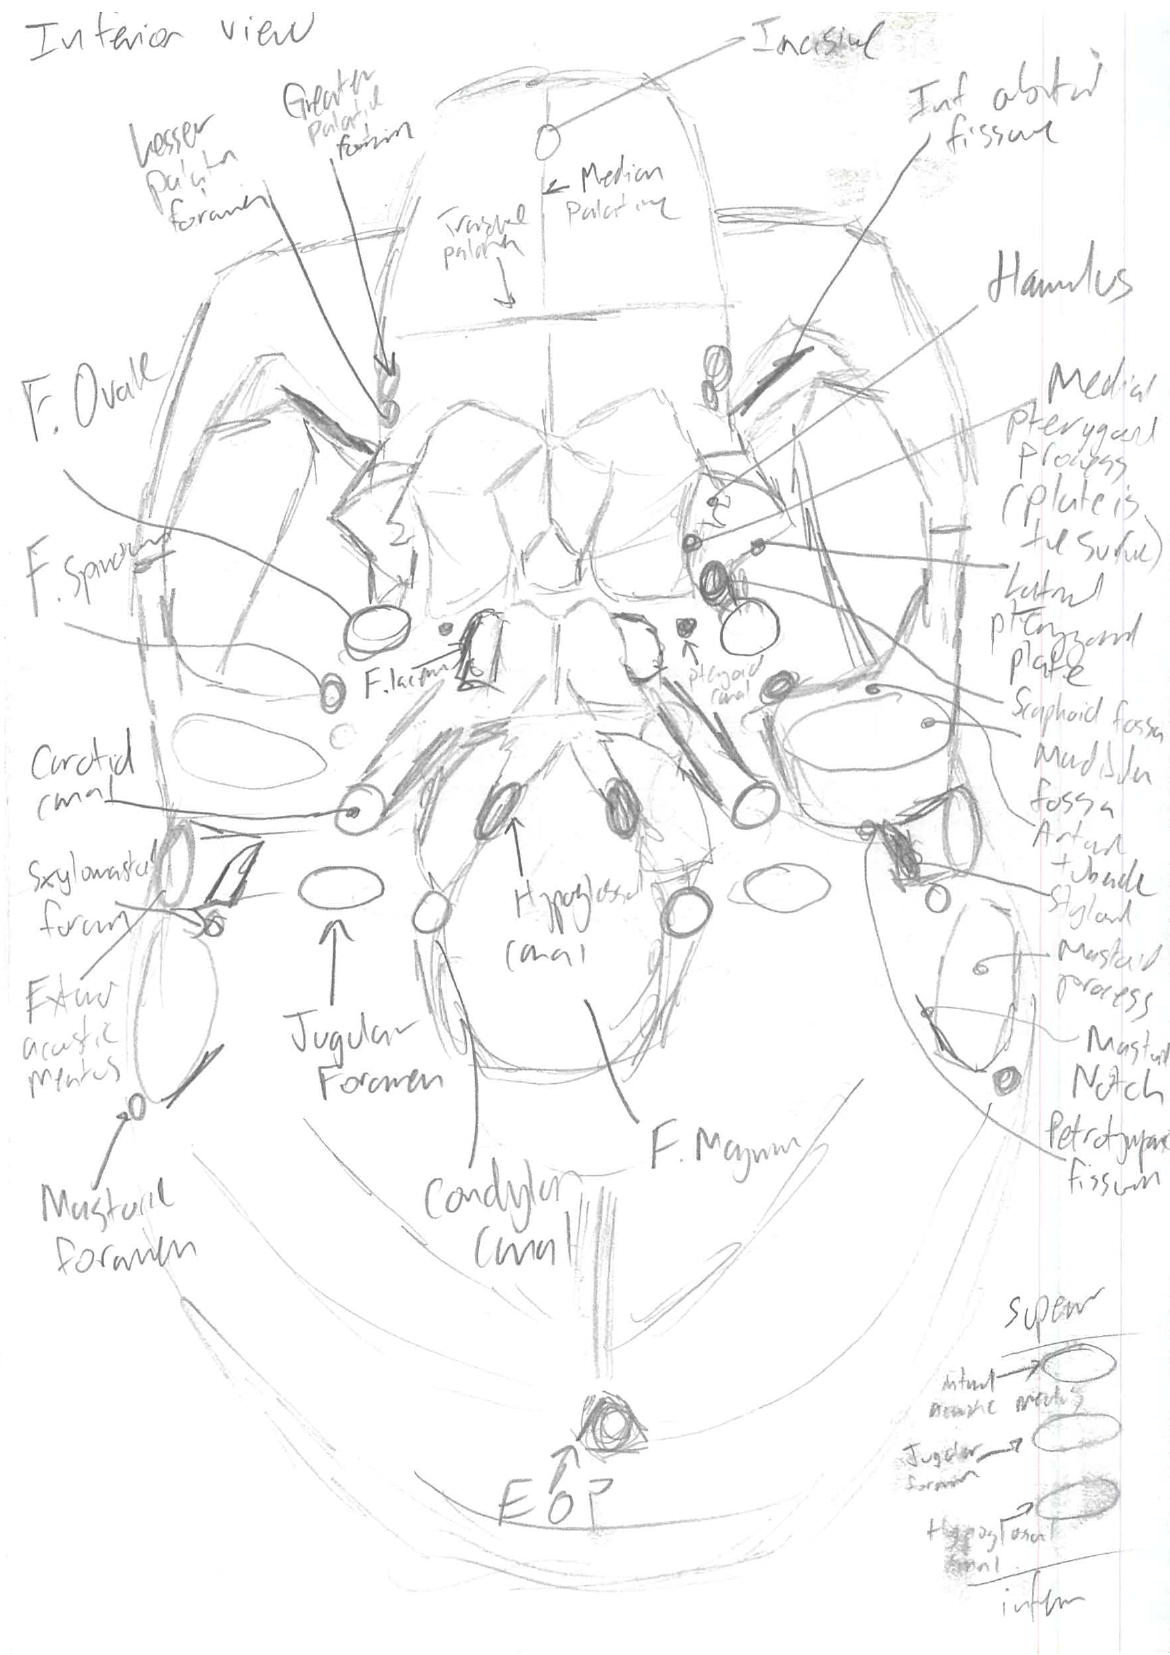 Inferior view
Incisive
Greater
Palatine
foramen
Lesser
palatin
foramen
Inf orbital
fissure
Median
Palatine
palatin
Hamulus
F. Ovale
Medial
pterygoid
process
(plate is
the surface)
F. Spinosum
Lateral
pterygoid
plate
F. lacerum
pterygoid
canal
Scaphoid fossa
Mandibular
fossa
Carotid
canal
tubercle
Styloid
foramen
Hypoglossal
canal
Mastoid
process
acoustic
meatus
Jugular
Foramen
Mastoid
Notch
fissure
F. Magnum
Mastoid
foramen
Condylar
Canal
EOP
super
acoustic meatus
Jugular
foramen
Hypoglossal
canal